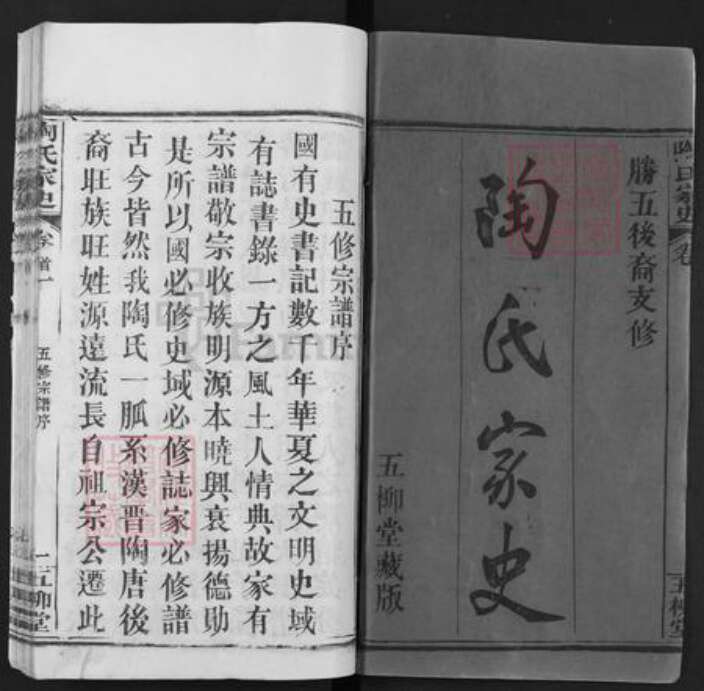 勝五後裔支修
陶氏家史
五柳堂藏版
五修宗譜序
國有史書記數千年華夏之文明史域
有誌書錄一方之風土人情典故家有
宗譜敬宗收族明源本曉興衰揚德勛
是所以國必修史域必修誌家必修譜
古今皆然我陶氏一脈系漢晋陶唐後
裔旺族旺姓源遠流長自祖宗公遷此
陶氏家史
卷首一
五修宗譜序
一
五柳堂